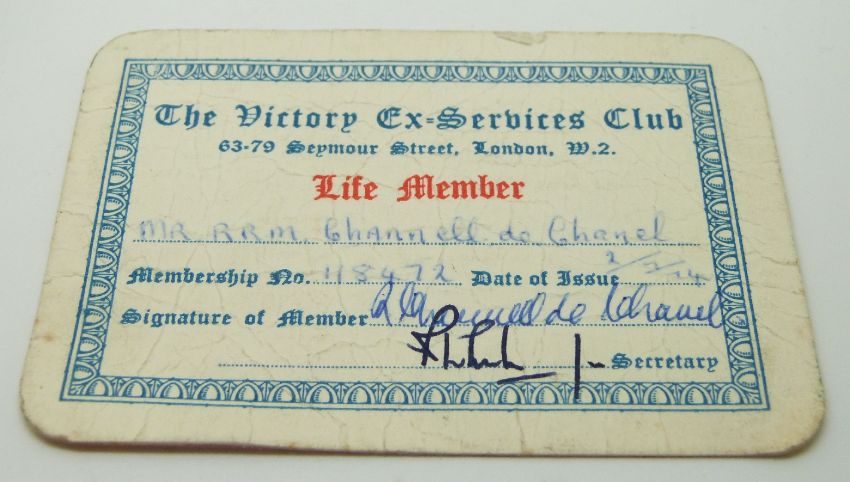 The Victory Ex-Services Club
63-79 Seymour Street, London, W.2.
Life Member
MR RRM. Channell de Chanel
Membership No. 118472 Date of Issue
Signature of Member R Channell de Chanel
Secretary